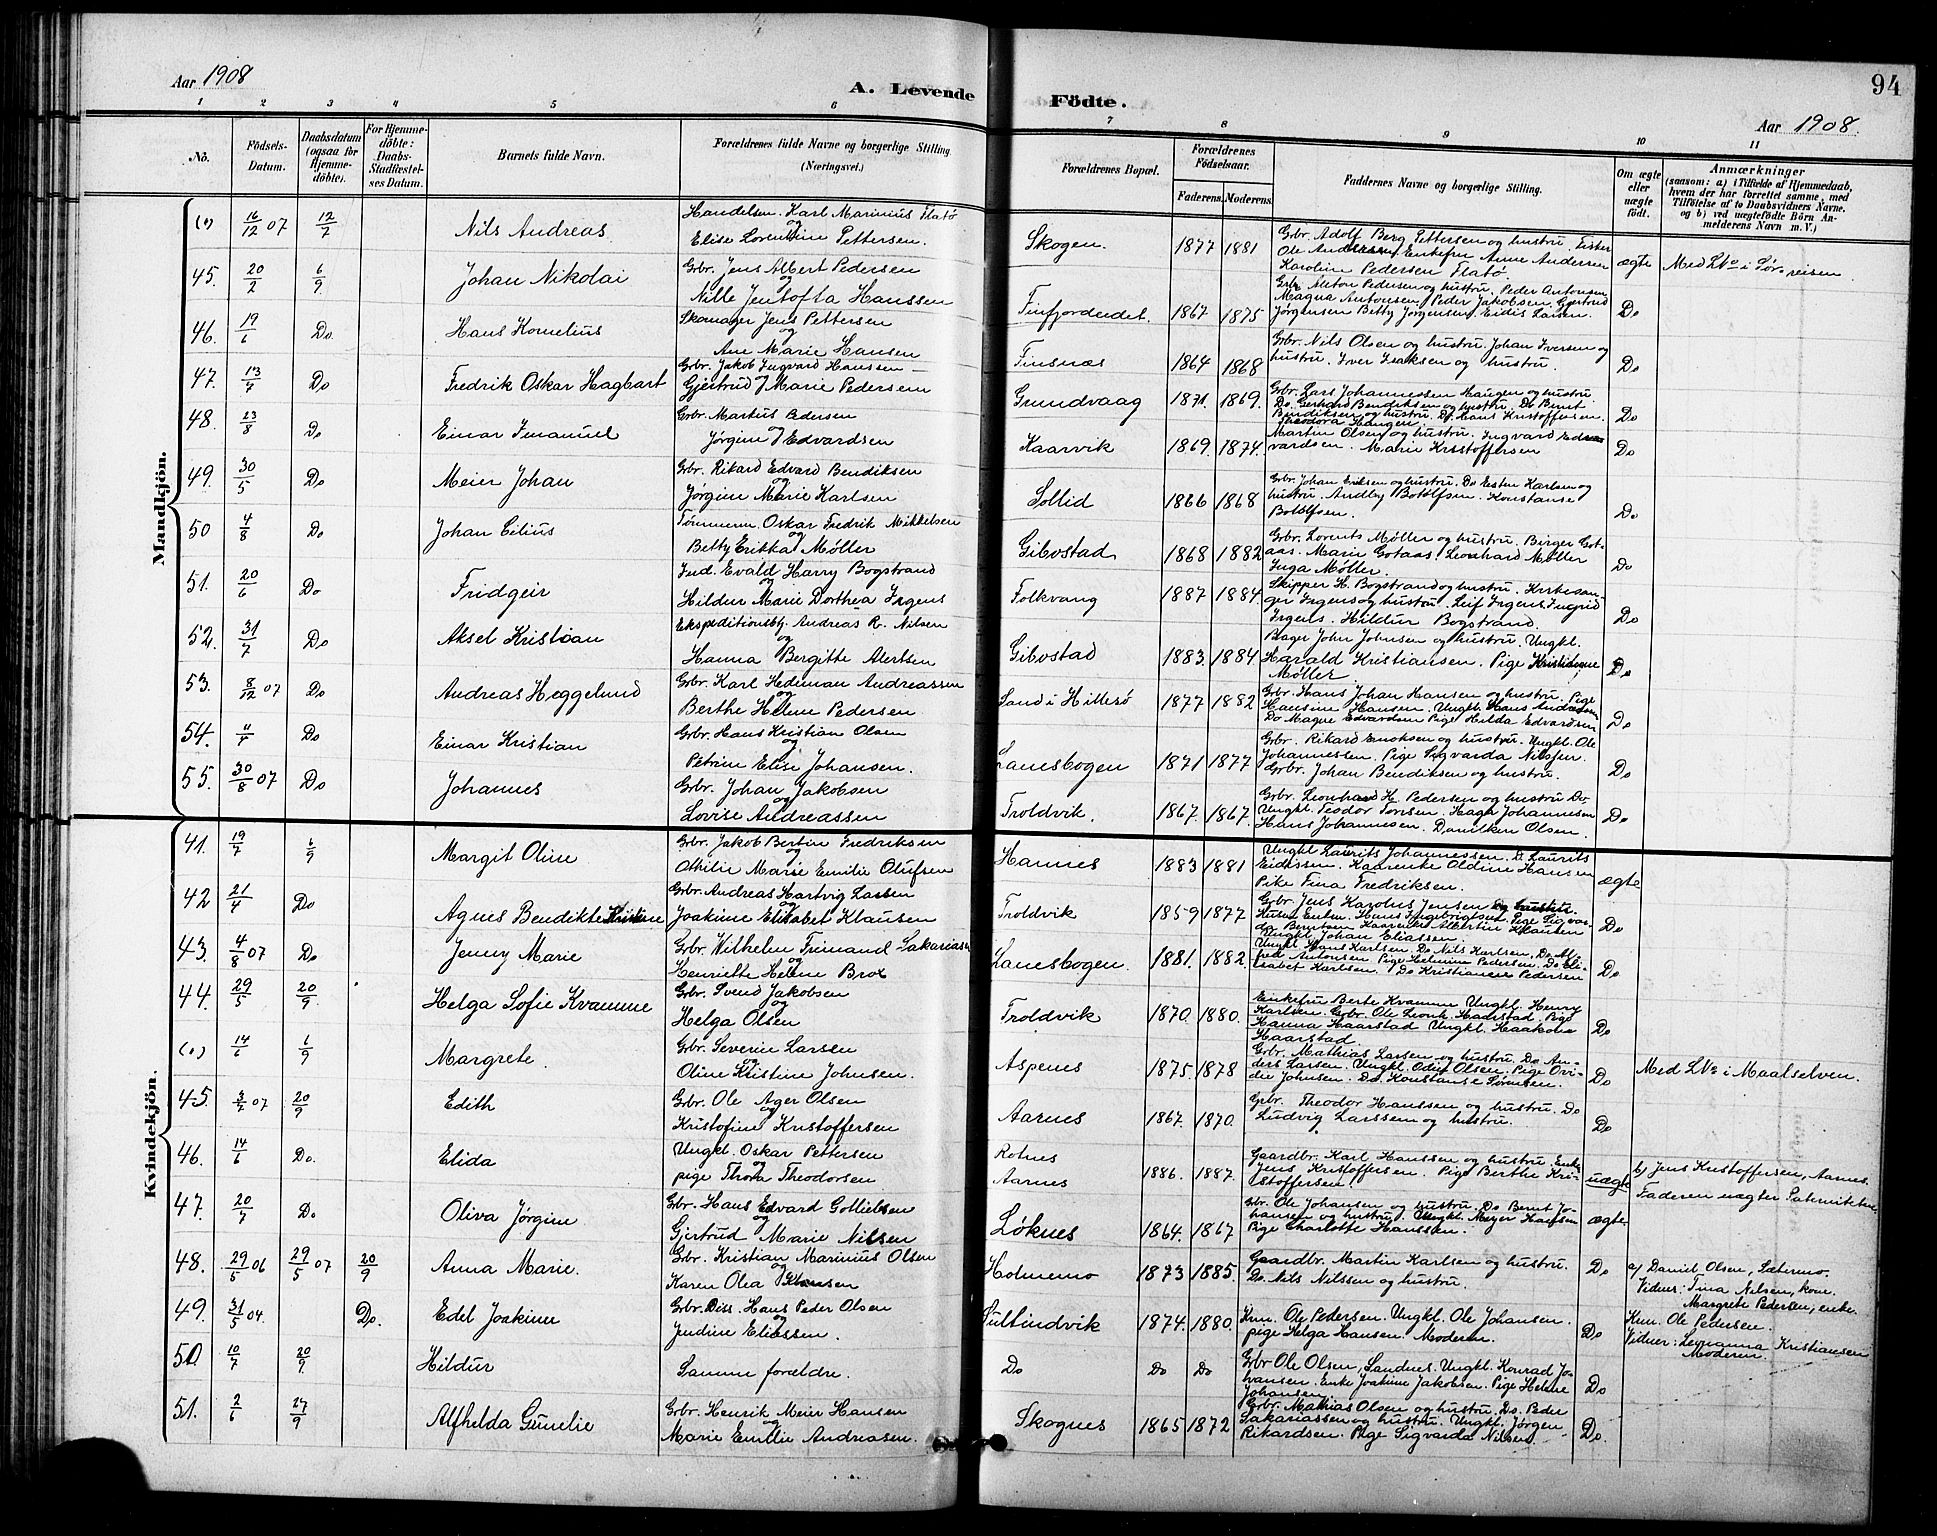 Aar 1908
A. Levende Födte.
94
Aar 1908.
1 2 3 4 5 6 7 8 9 10 11
No.
Födsels-Datum.
Daabsdatum (ogsaa for Hjemme-döbte).
For Hjemme-döbte: Daabs-Stadfæstel-ses Datum.
Barnets fulde Navn.
Forældrenes fulde Navne og borgerlige Stilling (Næringsvei.)
Forældrenes Bopæl.
Forældrenes Födselsaar.
Faderens. Moderens.
Faddernes Navne og borgerlige Stilling.
Om ægte eller uægte födt.
Anmærkninger
(saasom: a) i Tilfælde af Hjemmedaab,
hvem der har forrettet samme, med
Tilföielse af to Daabsvidners Navne.
og b) ved uægtefödte Börn An-
melderens Navn m. V.)
Mandkjön.
(0) 16/12 07 12/7 Nils Andreas Handelsm. Karl Marinius Flatø
og
Elise Lorentine Pettersen. Skogen. 1877 1881 Grbr. Adolf Berg Pettersen og hustru. Ester
Ole Andersen, Enkefru Anne Andersen
Karoline Pedersen Flatø ægte Med LNo i Sør-reisen
45. 20/2 6/9 Johan Nikolai Grbr. Jens Albert Pedersen
og
Nille Jentofta Hanssen Finfjordeidet. 1867 1875 Grbr. Anton Pedersen og hustru. Peder Antonsen
Magna Antonsen, Peder Jakobsen. Gjertrud
Jørgensen Betty Jørgensen, Eidis Larsen. Do
46. 19/6 Do. Hans Kornelius Skomager Jens Pettersen
og
Ane Marie Hansen Finsnæs 1864 1868 Grbr. Nils Olsen og hustru. Johan Iversen og
hustru. Iver Isaksen og hustru. Do
47. 13/7 Do Fredrik Oskar Hagbart Grbr. Jakob Ingvard Hanssen
Gjertrud Marie Pedersen Grundvaag 1871. 1869. Grbr. Lars Johannessen Haugen og hustru
Do. Gerhard Bendiksen og hustru. Do Bernt
Bendiksen og hustru. Do. Hans Kristoffersen.
Theodora Haugen. Do
48. 23/8 Do Einar Imanuel Grbr. Martius Pedersen
og
Jørgine Edvardsen Kaarvik 1869. 1874. Martin Olsen og hustru. Ingvard Ed-
vardsen. Marie Kristoffersen Do
49. 30/5 Do Meier Johan Grbr. Rikard Edvard Bendiksen
og
Jørgine Marie Karlsen Sollid 1866 1868 Grbr. Johan Eriksen og hustru. Do Ester Karlsen og
hustru. Andley Botolfsen. Konstanse
Botolfsen. Do
50 4/8 Do Johan Celius Tømmerm. Oskar Fredrik Mikkelsen
og
Betty Erikka Møller Gibostad 1868 1882 Grbr. Lorents Møller og hustru. Birger Got-
aas. Marie Gotaas. Leonhard Møller
Inga Møller. Do
51. 20/6 Do Fridgeir Ind. Evald Harry Bogstrand
og
Hildur Marie Dorthea Irgens Folkvang 1887 1884. Skipper H. Bogstrand og hustru. Kirkesan-
ger Irgens og hustru. Leif Irgens, Ingrid
Irgens. Hildur Bogstrand. Do
52. 31/7 Do Aksel Kristian Ekspeditionsbtj. Andreas R. Nilsen
og
Hanna Bergitte Alertsen Gibostad 1883. 1884 Bager John Johnsen og hustru. Ungkl.
Harald Kristiansen. Pige Kristine
Møller. Do
53. 8/12 07 Do Andreas Heggelund Grbr. Karl Hedeman Andreassen
og
Berthe Helene Pedersen Sand i Hillesø 1877 1882 Grbr. Hans Johan Hansen og hustru. Pige
Hansine Hansen. Ungkl. Hans Andersen
Do Magne Edvardsen Pige Hilda Edvardsen Do
54. Do Einar Kristian Grbr. Hans Kristian Olsen
og
Petrine Elise Johansen. Lanesbogen 1871 1877 Grbr. Rikard Enoksen og hustru. Ungkl. Ole
Johannessen. Pige Sigvarda Nilssen.
Grbr. Johan Bendiksen og hustru. Do
55. 30/8 07 Do Johannes Grbr. Johan Jakobsen
og
Lovise Andreassen Troldvik. 1867. 1867. Grbr. Leonhard H. Pedersen og hustru Do.
Ungkl. Teodor Torisen. Haga Johannesen
Hans Johannesen. Danilken Olsen. Do
Kvindekjön.
41. 19/7 6/9 Margit Oline Grbr. Jakob Bertin Fredriksen
og
Othilie Marie Emilie Olufsen Hannes 1883 1881 Ungkl Laurits Johannessen. Do Laurits
Eidissen. Kaarenke Oldine Hansen
Pike Tina Fredriksen. ægte
42 21/4 Do Agnes Bendikte Kristine Grbr. Andreas Hartvig Lassen
og
Joakime Elisabet Klausen Troldvik 1859 1877 Grbr Jens Karolus Jensen og hustru.
Hans Ingebrigtsen. Pige Sigvar-
da Berntsen Kaarenke Albertin Klausen
Ungkl. Johan Eliassen. Do
43. 4/8 07 Do Jenny Marie Grbr. Wilhelm Frimand Sakariasen
og
Henriette Helene Brox Lanesbogen. 1881. 1882. Ungkl Hans Karlsen. Do Nils Karlsen, Do Al-
fred Antonsen Pige Helmine Pedersen. Do Eli-
sabet Karlsen. Do Kristianne Pedersen Do
44. 29/5 20/9 Helga Sofie Kvamme Grbr. Svend Jakobsen
og
Helga Olsen Troldvik 1870. 1880. Enkefru Berte Kvamme Ungkl. Henry
Karlsen. Grbr. Ole Leonh. Haarstad. Pige
Hanna Haarstad Ungkl. Haakon
Haarstad Do
(0) 14/6 6/9 Margrete. Grbr. Severin Larsen
og
Oline Kristine Johnsen. Aspenes 1875. 1878 Grbr. Mathias Larsen og hustru. Do An-
ders Larsen. Ungkl. Odin Olsen. Pige Ovi-
die Johnsen. Do. Konstanse Sørnesen. Do Med LNo i Maalselven.
45. 3/7 07 20/9 Edith Grbr. Ole Ager Olsen
og
Kristofine Kristoffersen Aarnes 1867. 1870. Grbr. Theodor Hanssen og hustru. Do
Ludvig Larssen og hustru. Do
46. 14/6 Do. Elida Ungkl. Oskar Pettersen
og
pige Thora Theodorsen. Rotnes
Aarnes 1886. 1887. Gaardbr. Karl Hanssen og hustru. Enke
Jens Kristoffersen. Pige Berthe Kri-
stoffersen. uægte b) Jens Kristoffersen, Aarnes.
Faderen nægter Paterniteten
47. 20/7 Do Oliva Jørgine Grbr. Hans Edvard Gotliebsen
og
Gjertrud Marie Nilsen Løknes 1864. 1867 Gbr. Ole Johansen og hustru. Do Bernt Jo-
hansen og hustru. Ungkl. Meyer Hansen
Pige Charlotte Hanssen. ægte
48. 29/5 06 29/5 07 20/9 Anna Marie. Grbr. Kristian Marinius Olsen
og
Karen Olea Klausen Holmemo 1873 1885. Gaardbr. Martin Karlsen og hustru.
Do. Nils Nilssen og hustru. Do a) Daniel Olsen, Sætermo.
Vidner: Tina Nelsen, kone.
Margrete Pedersen, enke.
49. 31/5 04. Do. Edel Joakime Grbr. Diss. Hans Peder Olsen
og
Jendine Eliassen. Sultindvik 1874. 1880. Krm. Ole Pedersen. Ungkl. Ole Johansen.
pige Helga Hansen. Moderen. Do Krm. Ole Pedersen.
Vidner: Leynanna Kristiansen
Moderen.
50. 10/7 20/9 Hildur Samme forældre. Do Do Do Grbr Ole Olsen, Sandnes. Ungkl. Konrad Jo-
hansen. Enke Joakime Jakobsen. Pige Helene
Johansen. Do
51. 2/6 27/9 Alfhelda Gunelie Grbr. Henrik Meier Hansen
og
Marie Emilie Andreasen. Skognes 1865 1872 Grbr. Mathias Olsen og hustru. Do. Peder
Sakariassen og hustru. Ungkl. Jørgen
Rikardsen. Pige Sigvarda Nilsen. Do.